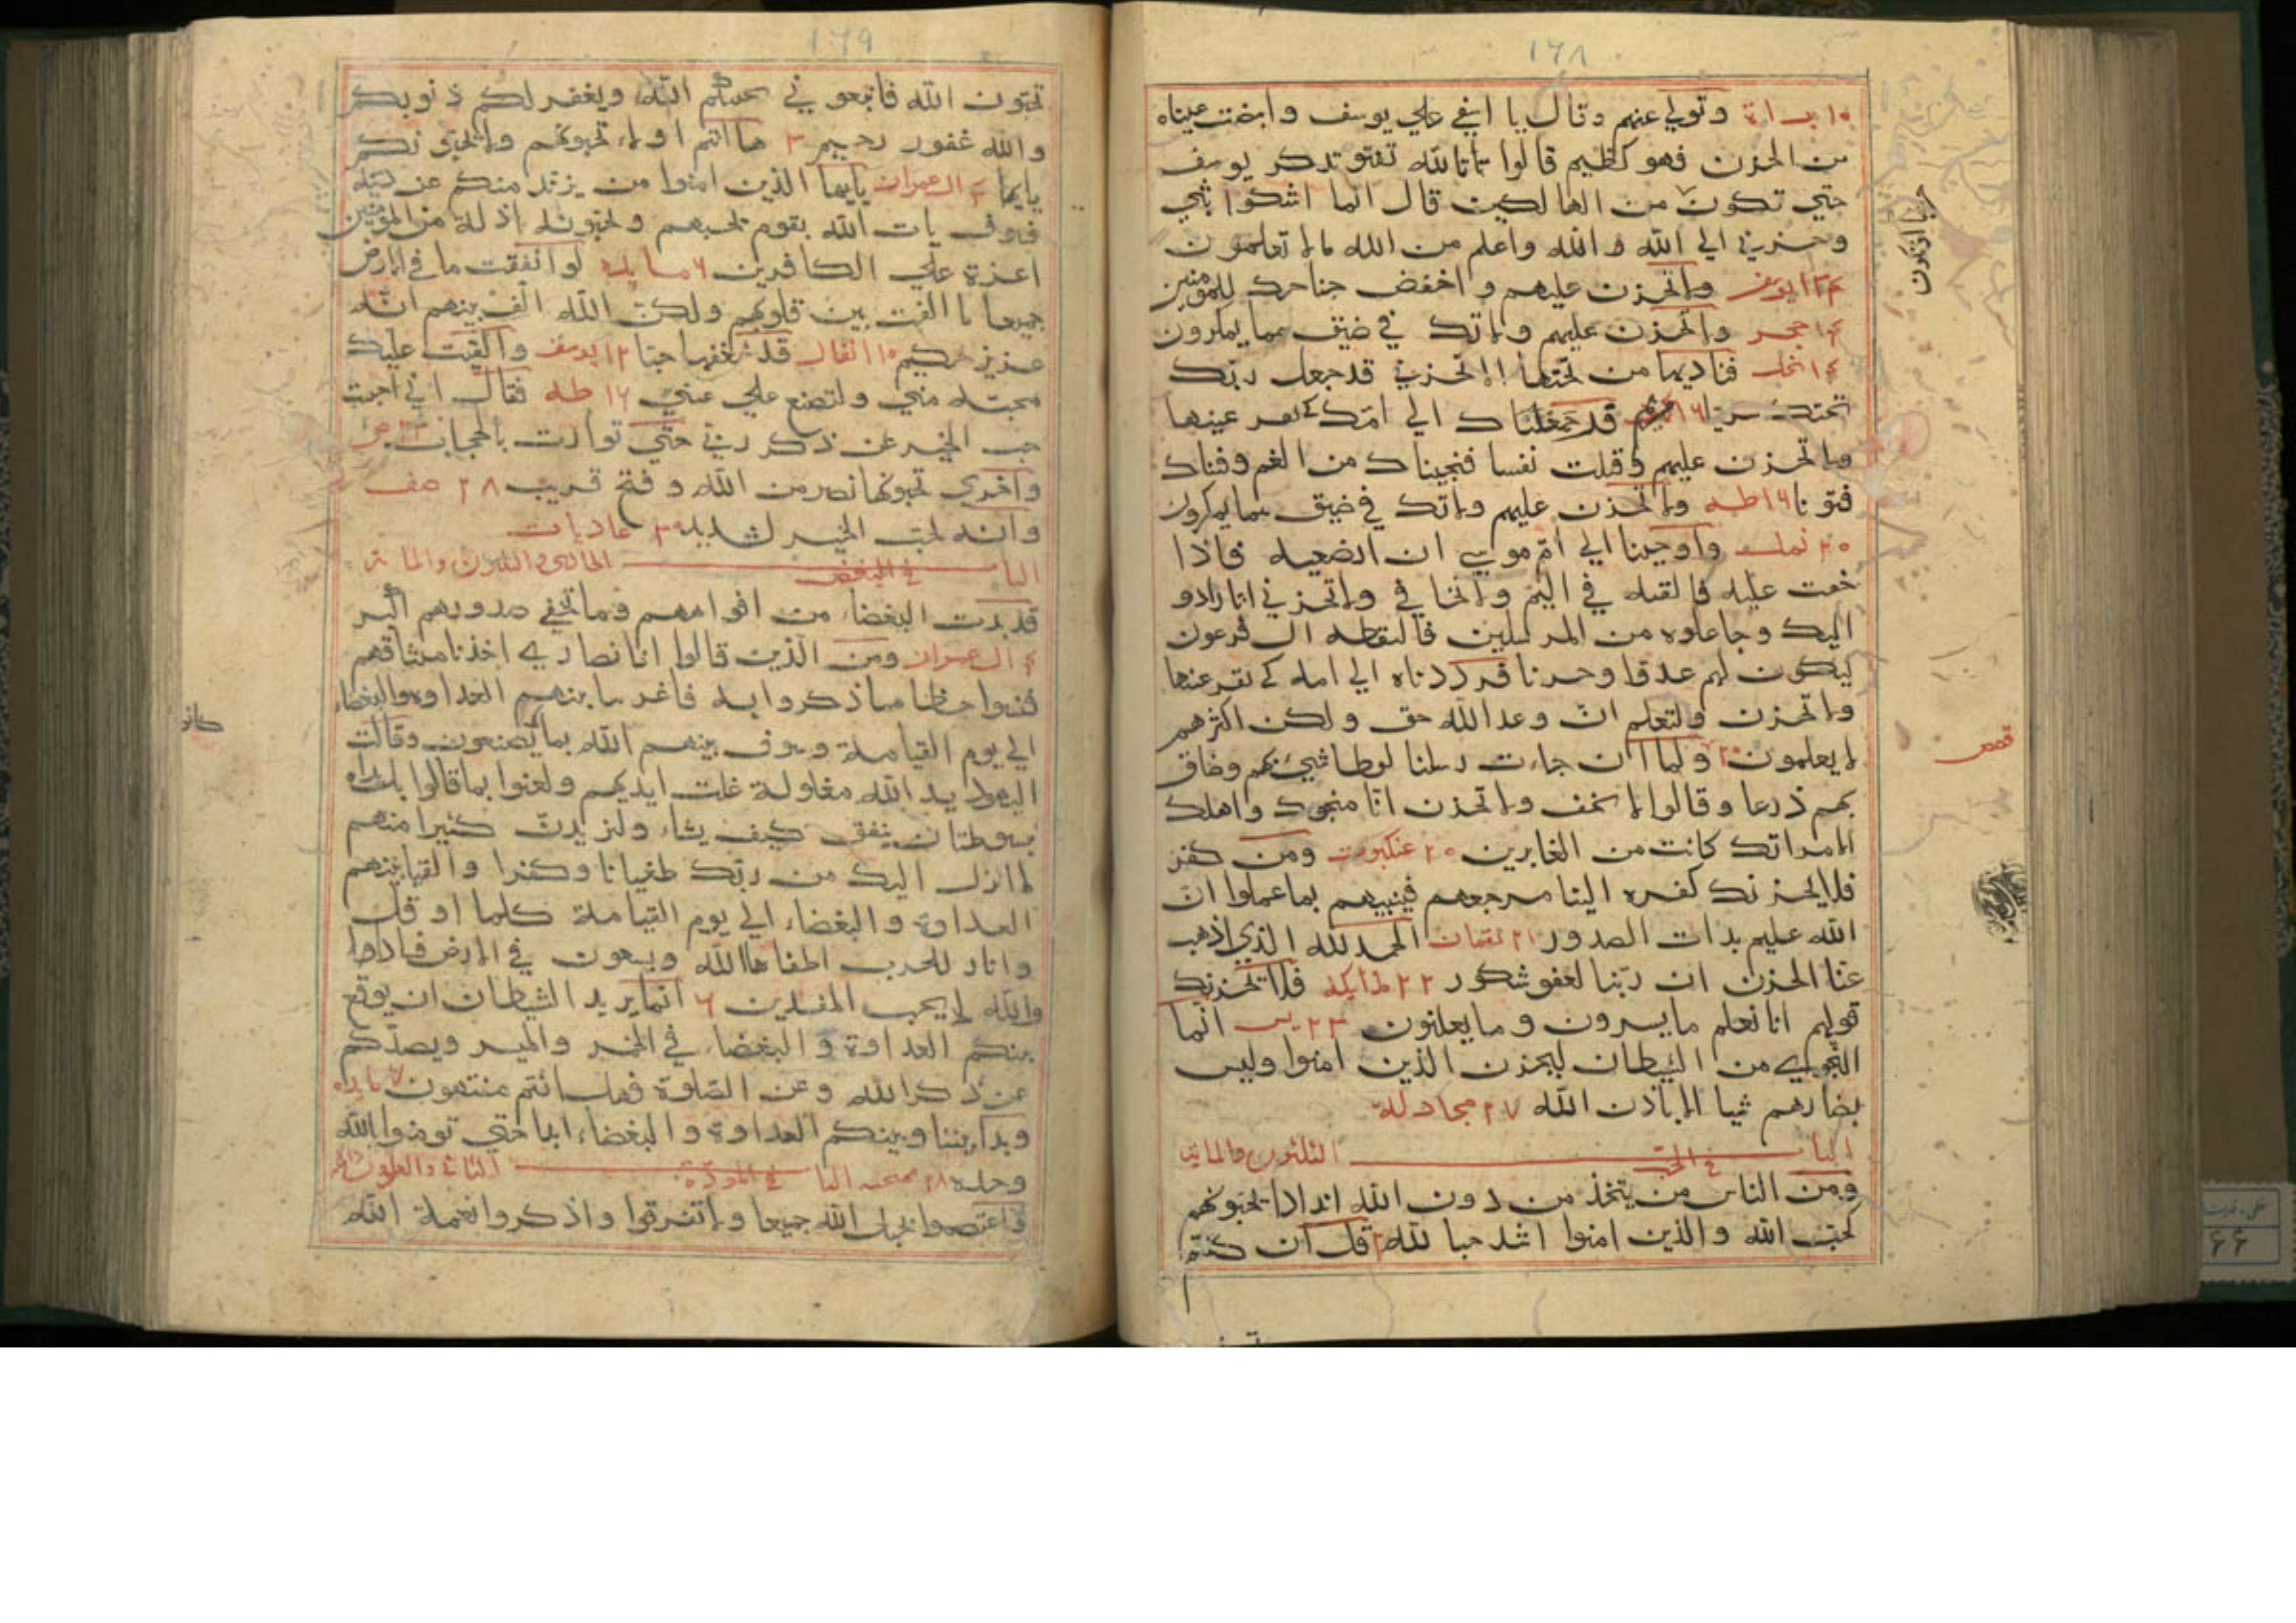 ١٦٨
١٠ براة وتولي عنهم وقال يا اسفي علي يوسف وابيضت عيناه
من الحزن فهو كظيم قالوا تاتالله تفتو تذكر يوسف
حتي تكون من الهالكين قال انما اشكوا بثي
وحزني الي الله والله واعلم من الله مالا تعلمون
١٣ يوسف ولا تحزن عليهم واخفض جناحك للمومنين
١٤ حجر ولا تحزن عليهم ولا تك في ضيق مما يمكرون
١٤ نحل فناديها من تحتها الا تحزني قد جعل ربك
تحتك سريا ١٦ مريم قد جعلناك الي امك كي تقر عينها
ولا تحزن عليهم وقتلت نفسا فنجيناك من الغم وفتناك
فتونا ١٦ طه ولا تحزن عليهم ولا تك في ضيق مما يمكرون
٢٠ نمل واوحينا الي ام موسي ان ارضعيه فاذا
خفت عليه فالقيه في اليم ولا تخافي ولا تحزني انا رادو
اليك وجاعلوه من المرسلين فالتقطه ال فرعون
ليكون لهم عدوا وحزنا فرددناه الي امه كي تقر عينها
ولا تحزن ولتعلم ان وعد الله حق ولكن اكثرهم
لا يعلمون ٢٠ ولما ان جاءت رسلنا لوطا شيئ بهم وضاق
قصص
بهم ذرعا وقالوا لا تخف ولا تحزن انا منجوك واهلك
الا امراتك كانت من الغابرين ٢٠ عنكبوت ومن كفر
فلا يحزنك كفره الينا مرجعهم فينبيهم بما عملوا ان
الله عليم بذات الصدور ٢١ لقمان الحمد لله الذي اذهب
عنا الحزن ان ربنا لغفو شكور ٢٢ ملايكه فلا يحزنك
قولهم انا نعلم ما يسرون وما يعلنون ٢٣ يس انما
النجوي من الشيطان ليحزن الذين امنوا وليس
بضارهم شيا الا باذن الله ٢٧ مجادله
الباب الثلثون والمايه في الحب
ومن الناس من يتخذ من دون الله اندادا يحبونهم
كحب الله والذين امنوا اشد حبا لله ٢ قل ان كنتم
١٦٩
تحبون الله فاتبعوني يحببكم الله ويغفر لكم ذنوبكم
والله غفور رحيم ٣ ها انتم اولاء تحبونهم ولا يحبونكم
يايها ٤ ال عمران يايها الذين امنوا من يرتد منكم عن دينه
فسوف يات الله بقوم يحبهم ويحبونه اذلة من المومنين
اعزة علي الكافرين ٦ مايده لو انفقت ما في الارض
جميعا ما الفت بين قلوبهم ولكن الله الف بينهم انه
عزيز حكيم ١٠ انفال قد شغفها حبا ١٢ يوسف والقيت عليك
محبته مني ولتصنع علي عيني ١٦ طه فقال اني احببت
حب الخير عن ذكر ربي حتي توارت بالحجاب ٢٣ ص
واخري تحبونها نصر من الله وفتح قريب ٢٨ صف
وانه لحب الخير لشديد ٣٠ عاديات
الباب الحادي والثلثون والماية في البغض
قد بدت البغضاء من افواههم وما تخفي صدورهم اكبر
٤ ال عمران ومن الذين قالوا انا نصاري اخذنا ميثاقهم
فنسوا حظا مما ذكروا به فاغرينا بينهم العداوة والبغضاء
الي يوم القيامة وسوف ينبهم الله بما يصنعون وقالت
اليهود يد الله مغلولة غلت ايديهم ولعنوا بما قالوا بل يداه
مبسوطتان ينفق كيف يشاء وليزيدن كثيرا منهم
ما انزل اليك من ربك طغيانا وكفرا والقينا بينهم
العداوة والبغضاء الي يوم القيامة كلما اوقد
وا نار للحرب اطفاها الله ويسعون في الارض فسادا
والله لا يحب المفسدين ٦ انما يريد الشيطان ان يوقع
بينكم العداوة والبغضاء في الخمر والميسر ويصدكم
عن ذكر الله وعن الصلوة فهل انتم منتهون ٧ مايده
وبدا بيننا وبينكم العداوة والبغضاء ابدا حتي تومنوا بالله
وحده ٢٨ ممتحنه الباب الثاني والثلثون والمايه في المودة
واعتصموا بحبل الله جميعا ولا تفرقوا واذكروا نعمة الله